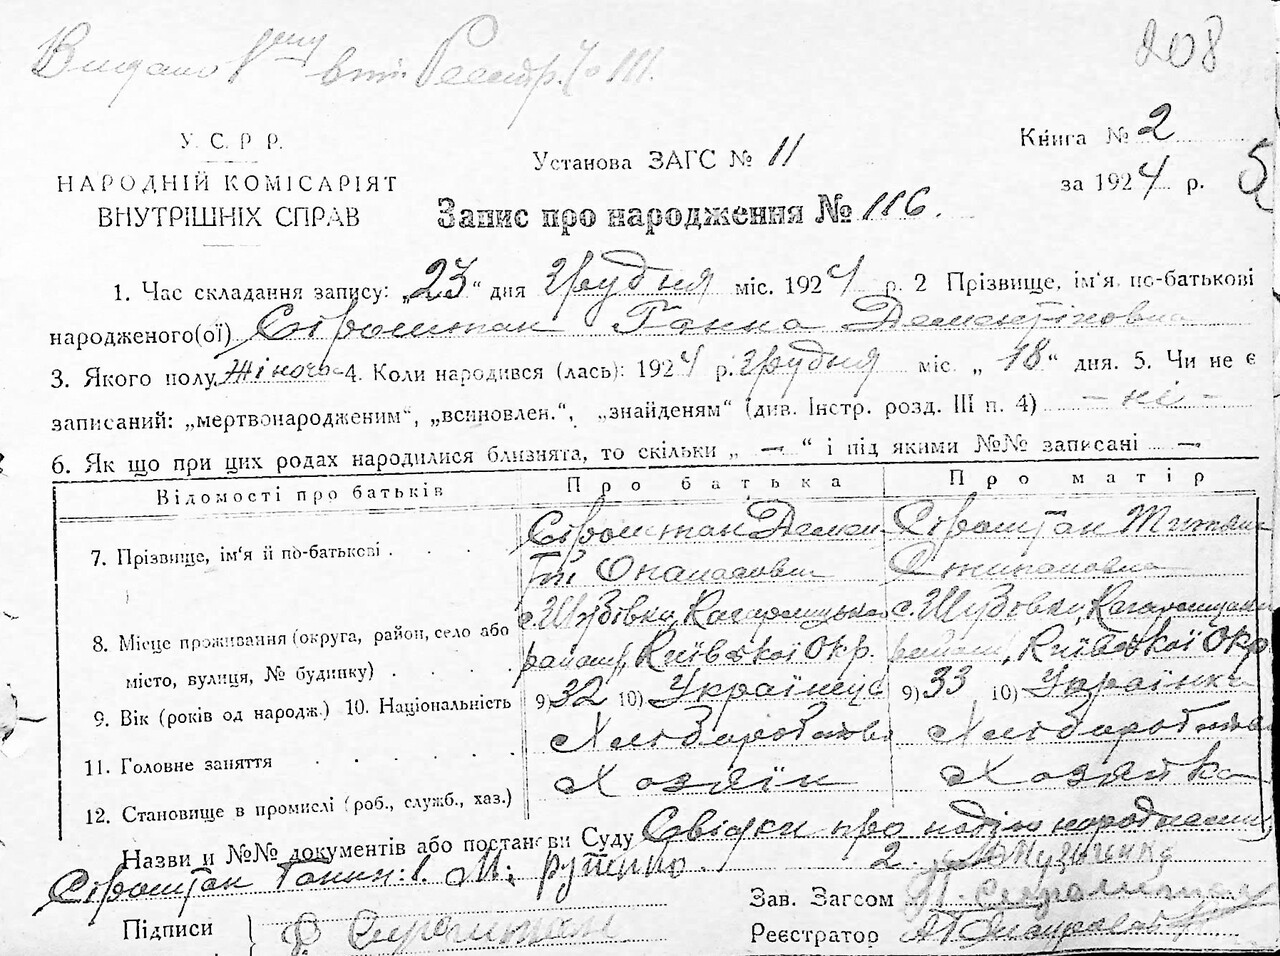 Видано вт.
208
У. С. Р. Р.
НАРОДНІЙ КОМІСАРІЯТ
ВНУТРІШНІХ СПРАВ
Установа ЗАГС № 11
Книга № 2
за 1924 р.
5
Запис про народження № 116.
1. Час складання запису: „23“ дня Грудня міс. 1924 р. 2 Прізвище, ім‘я по-батькові
народженого(ої) Строштан Ганна Дементіновна
3. Якого полу Жіночо 4. Коли народився (лась): 1924 р. Грудня міс. „18“ дня. 5. Чи не є
записаний: „мертвонародженим“, „всиновлен.“, „знайденям“ (див. Інстр. розд. III п. 4) - ні -
6. Як що при цих родах народилися близнята, то скільки „ — “ і під якими №№ записані —
Відомості про батьків Про батька Про матір
7. Прізвище, ім‘я й по-батькові Строштан Демен Строштан
тій Опанасович Степановна
8. Місце проживання (округа, район, село або с. Шубовка, Кагарлицько с. Шубовка, Кагарлицьк
місто, вулиця, № будинку) району, Київської Окр. району, Київської Окр
9. Вік (років од народж.) 10. Національність 9) 32 10) Українець 9) 33 10) Українка
11. Головне заняття Хлеборобство Хлеборобство
12. Становище в промислі (роб., служб., хаз.) Хозяїн Хозяйка
Назви и №№ документів або постанови Суду Свідки про подію народження
Строштан Ганни: 1. М. 2. Музиченко
Підписи
Зав. Загсом
Реєстратор